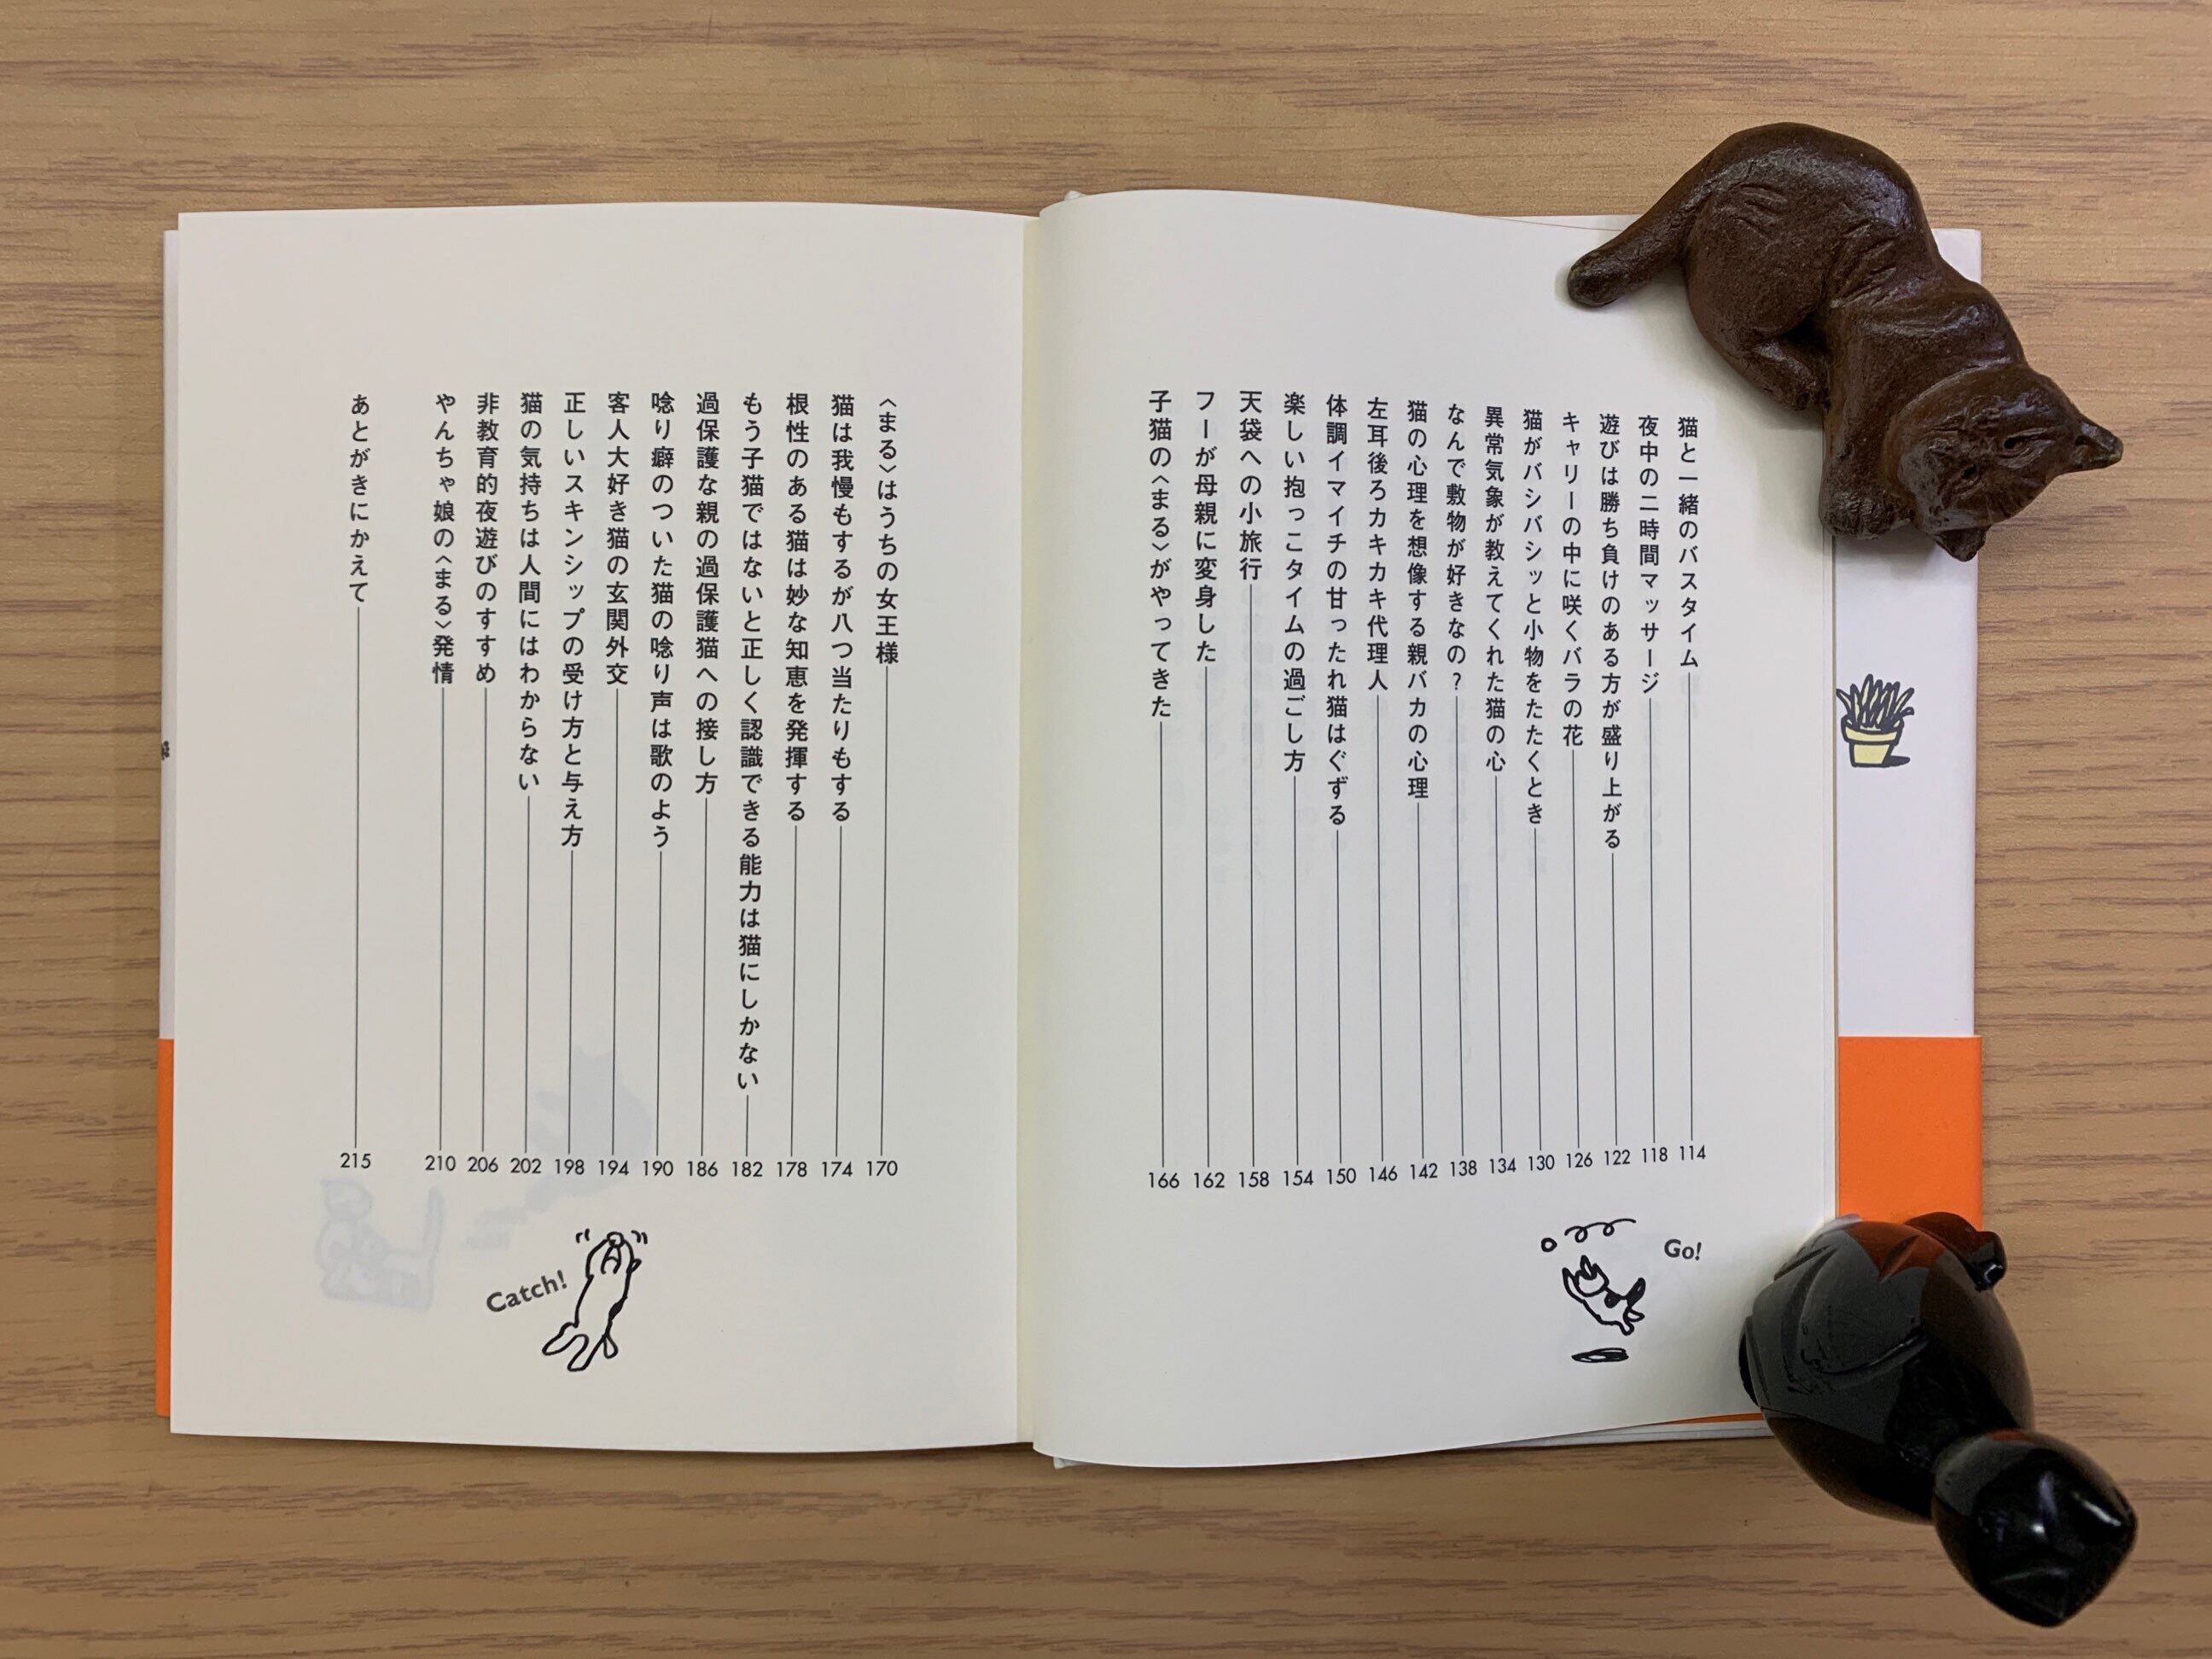 猫と一緒のバスタイム 114
夜中の二時間マッサージ 118
遊びは勝ち負けのある方が盛り上がる 122
キャリーの中に咲くバラの花 126
猫がバシバシッと小物をたたくとき 130
異常気象が教えてくれた猫の心 134
なんで敷物が好きなの? 138
猫の心理を想像する親バカの心理 142
左耳後ろカキカキ代理人 146
体調イマイチの甘ったれ猫はぐずる 150
楽しい抱っこタイムの過ごし方 154
天袋への小旅行 158
フーが母親に変身した 162
子猫の〈まる〉がやってきた 166
Go!
〈まる〉はうちの女王様 170
猫は我慢もするが八つ当たりもする 174
根性のある猫は妙な知恵を発揮する 178
もう子猫ではないと正しく認識できる能力は猫にしかない 182
過保護な親の過保護猫への接し方 186
唸り癖のついた猫の唸り声は歌のよう 190
客人大好き猫の玄関外交 194
正しいスキンシップの受け方と与え方 198
猫の気持ちは人間にはわからない 202
非教育的夜遊びのすすめ 206
やんちゃ娘の〈まる〉発情 210
あとがきにかえて 215
Catch!